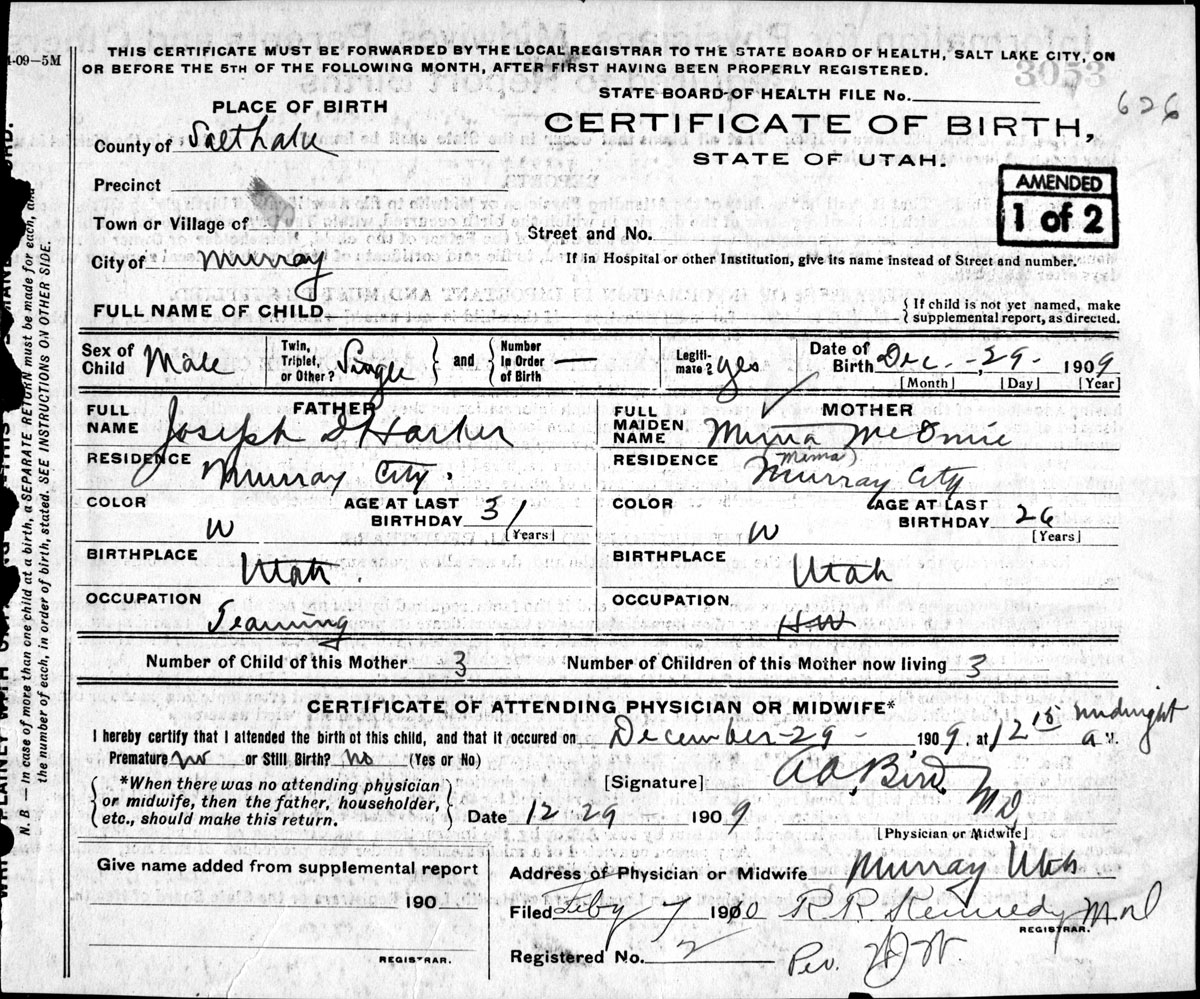 4-09—5M
THIS CERTIFICATE MUST BE FORWARDED BY THE LOCAL REGISTRAR TO THE STATE BOARD OF HEALTH, SALT LAKE CITY, ON
OR BEFORE THE 5TH OF THE FOLLOWING MONTH, AFTER FIRST HAVING BEEN PROPERLY REGISTERED.
3053
STATE BOARD OF HEALTH FILE No.
626
PLACE OF BIRTH
CERTIFICATE OF BIRTH,
STATE OF UTAH.
County of Salt Lake
Precinct
AMENDED
1 of 2
Town or Village of
Street and No.
City of Murray
If in Hospital or other Institution, give its name instead of Street and number.
FULL NAME OF CHILD
{ If child is not yet named, make
supplemental report, as directed.
Sex of Child Male
Twin, Triplet, or Other? Single } and { Number in Order of Birth —
Legitimate? yes
Date of Birth Dec - 29 - 1909
[Month] [Day] [Year]
FATHER
FULL NAME Joseph D Harker
MOTHER
FULL MAIDEN NAME Mima McOmie
(Mima)
RESIDENCE Murray City.
RESIDENCE Murray City
COLOR W
AGE AT LAST BIRTHDAY 31 [Years]
COLOR W
AGE AT LAST BIRTHDAY 26 [Years]
BIRTHPLACE Utah.
BIRTHPLACE Utah
OCCUPATION Teaming
OCCUPATION H.W
Number of Child of this Mother 3
Number of Children of this Mother now living 3
CERTIFICATE OF ATTENDING PHYSICIAN OR MIDWIFE*
I hereby certify that I attended the birth of this child, and that it occured on December - 29 -, 1909, at 12 15 midnight a M.
Premature no or Still Birth? no (Yes or No)
{ *When there was no attending physician
or midwife, then the father, householder,
etc., should make this return. }
[Signature] Bird MD
Date 12 29 1909
[Physician or Midwife]
Give name added from supplemental report
190
REGISTRAR.
Address of Physician or Midwife Murray Utah
Filed Feby 7 1910 R.R. Kennedy M.D
REGISTRAR.
Registered No. 2
Per.
N. B — In case of more than one child at a birth, a SEPARATE RETURN must be made for each, and
the number of each, in order of birth, stated. SEE INSTRUCTIONS ON OTHER SIDE.